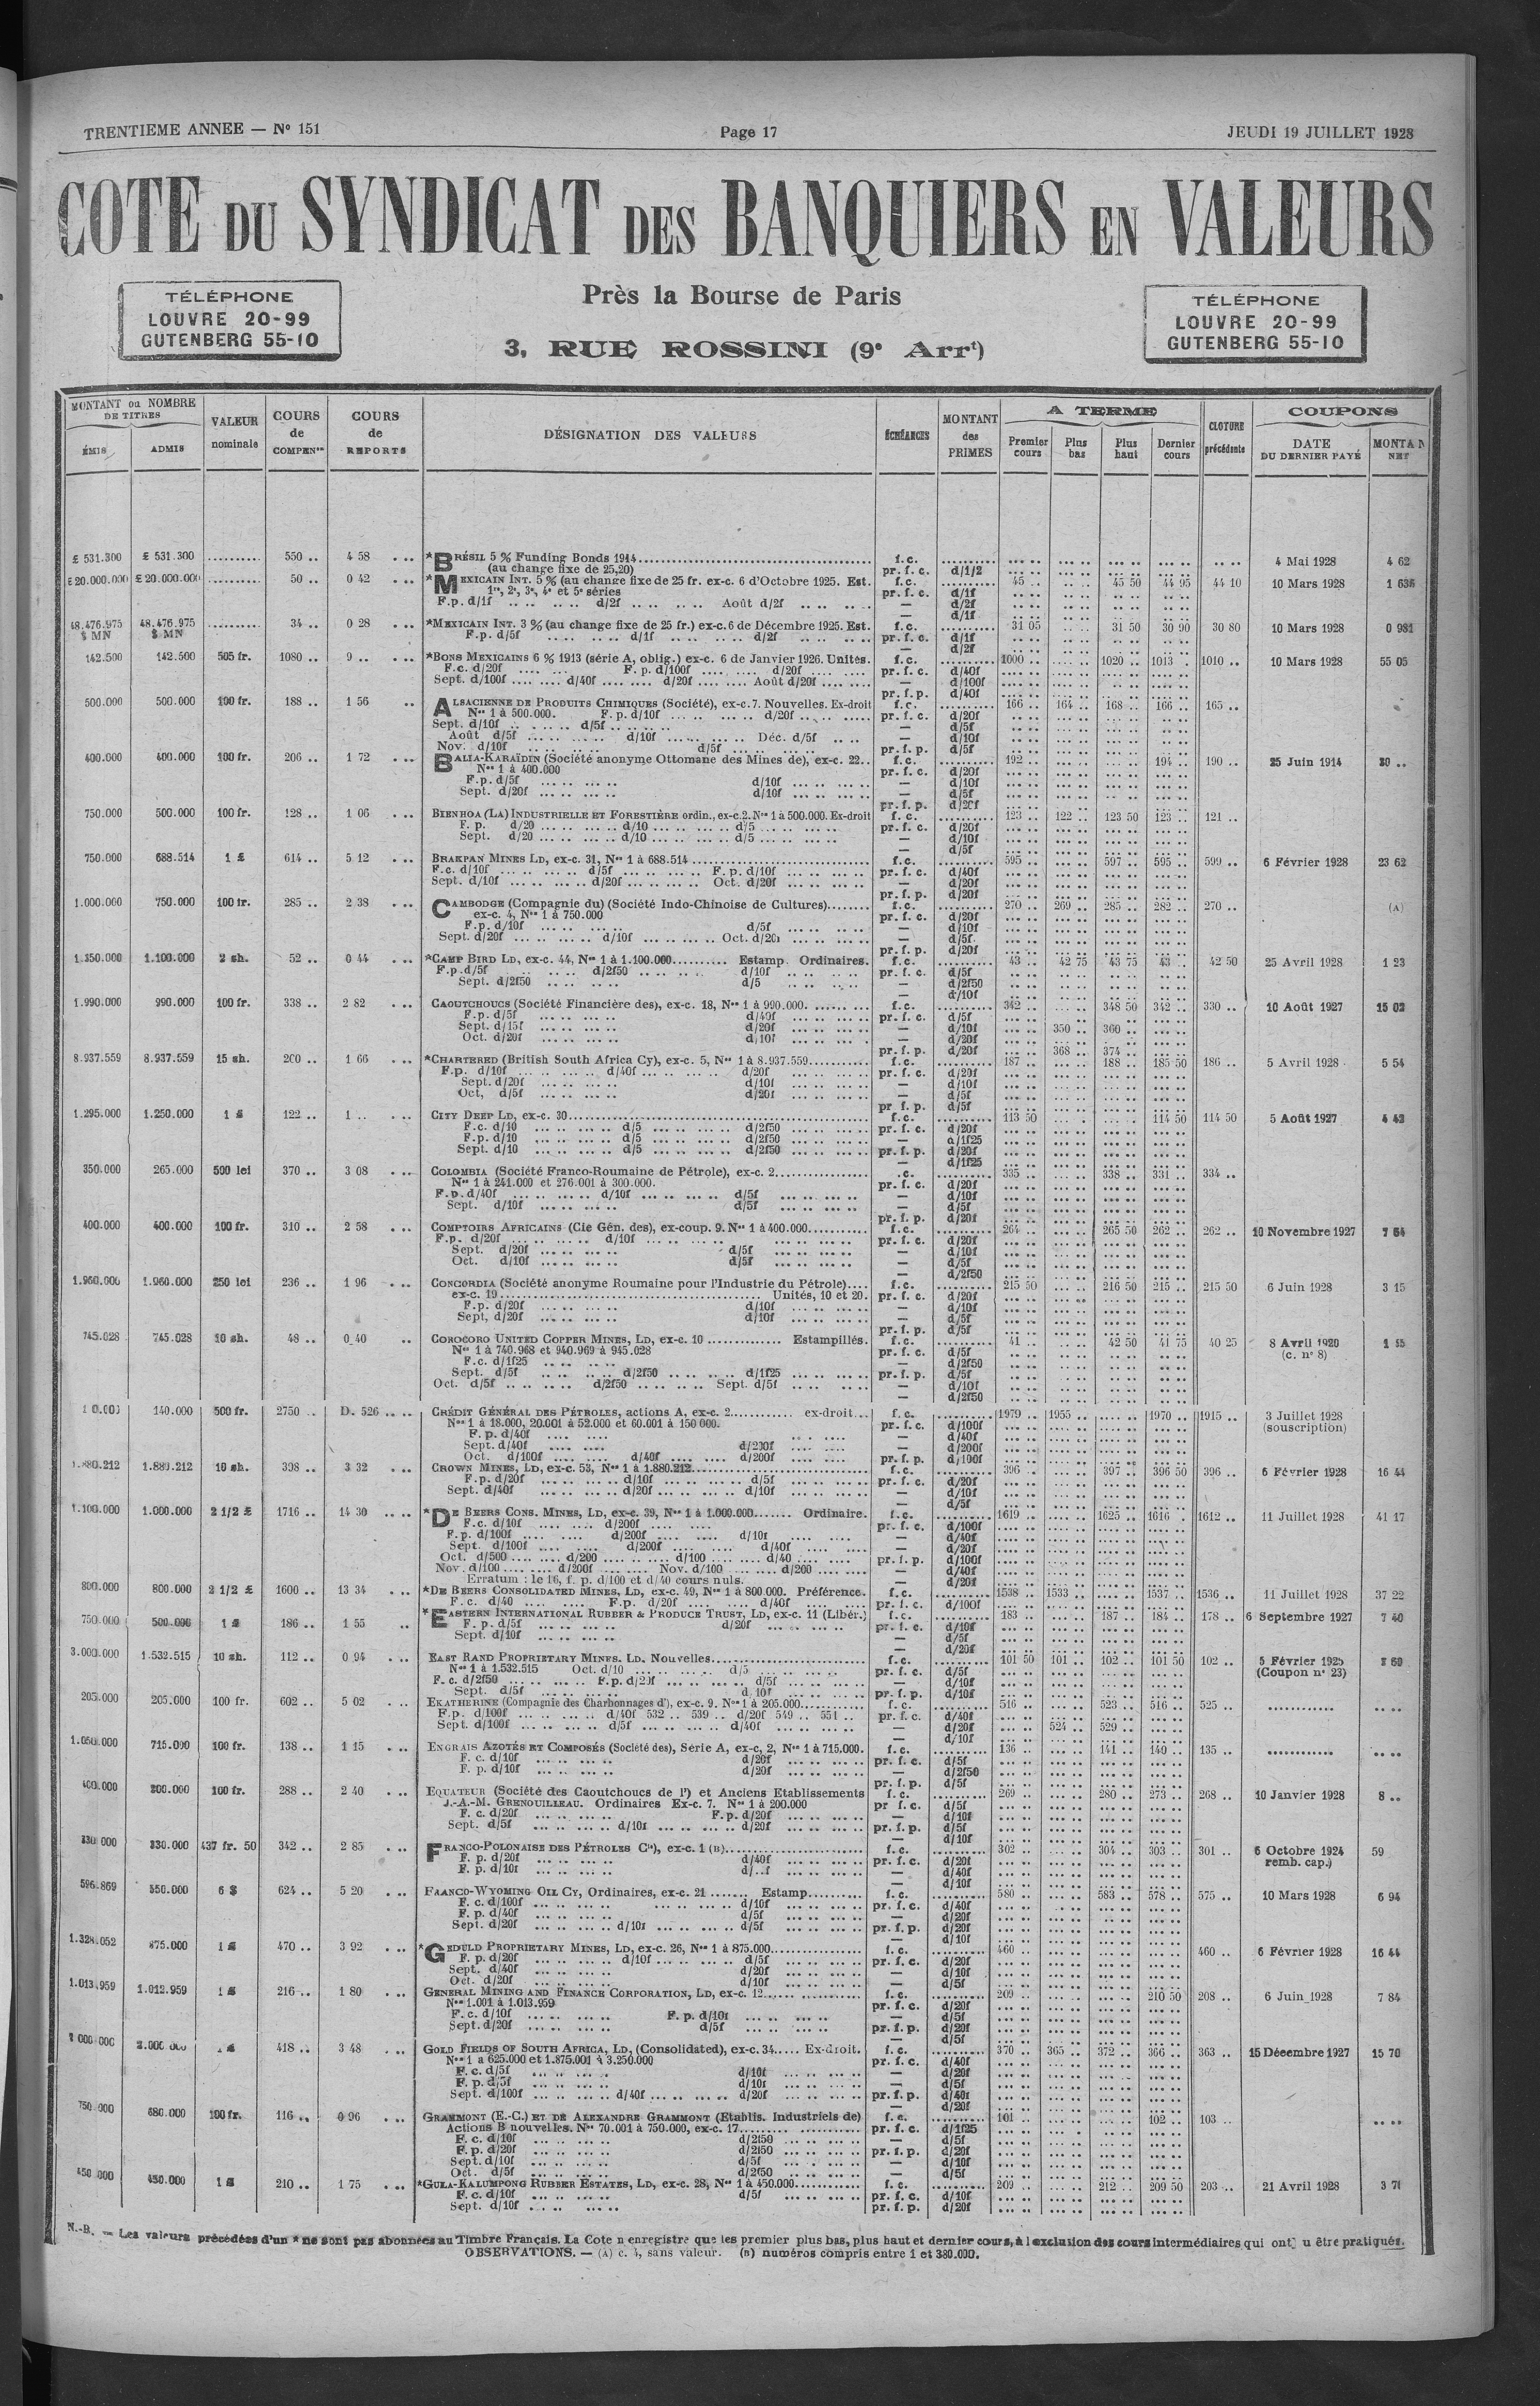 TRENTIEME ANNEE — No 151
Page 17
JEUDI 19 JUILLET 1928
COTE DU SYNDICAT DES BANQUIERS EN VALEURS
TÉLÉPHONE
LOUVRE 20-99
GUTENBERG 55-10
Près la Bourse de Paris
3, RUE ROSSINI (9e Arrt)
TÉLÉPHONE
LOUVRE 20-99
GUTENBERG 55-10
MONTANT ou NOMBRE DE TITRES
ÉMIS
ADMIS
VALEUR nominale
COURS de COMPENon
COURS de REPORTS
DÉSIGNATION DES VALEURS
ÉCHÉANCES
MONTANT des PRIMES
A TERME
Premier cours
Plus bas
Plus haut
Dernier cours
CLOTURE précédente
COUPONS
DATE DU DERNIER PAYÉ
MONTAN NET
£ 531.300 £ 531.300 .......... 550 .. 4 58 *BRÉSIL 5 % Funding Bonds 1914 f.c. 4 Mai 1928 4 62
(au change fixe de 25,20) pr. f. c. d/1/2
£ 20.000.000 £ 20.000.000 .......... 50 .. 0 42 *MEXICAIN INT. 5 % (au change fixe de 25 fr. ex-c. 6 d'Octobre 1925. Est. f.c. 45 .. 45 50 44 95 44 10 10 Mars 1928
1re, 2e, 3e, 4e et 5e séries pr. f. c. d/1f
F.p. d/1f .. .. d/2f .. .. Août d/2f — d/2f
48.476.975 $ MN 48.476.975 $ MN 34 .. 0 28 *MEXICAIN INT. 3 % (au change fixe de 25 fr.) ex-c. 6 de Décembre 1925. Est. f.c. 31 05 31 50 30 90 30 80 10 Mars 1928 0 981
F.p. d/5f .. .. d/1f .. .. d/2f pr. f. c. d/1f
142.500 142.500 505 fr. 1080 .. 9 .. *BONS MEXICAINS 6 % 1913 (série A, oblig.) ex-c. 6 de Janvier 1926. Unités. f.c. 1000 .. 1020 .. 1013 . 1010 .. 10 Mars 1928 55 05
F.c. d/20f .... F. p. d/100f .... d/20f pr. f. c. d/40f
Sept. d/100f .... d/40f .... d/20f .... Août d/20f — d/100f
pr. f. p. d/40f
500.000 500.000 100 fr. 188 .. 1 56 ALSACIENNE DE PRODUITS CHIMIQUES (Société), ex-c. 7. Nouvelles. Ex-droit f.c. 166 .. 164 .. 168 .. 166 .. 165 ..
Nos 1 à 500.000. F. p. d/10f .... d/20f pr. f. c. d/20f
Sept. d/10f .... d/5f — d/5f
Août d/5f .... d/10f .... Déc. d/5f — d/10f
Nov. d/10f .... d/5f pr. f. p. d/5f
400.000 400.000 100 fr. 206 .. 1 72 BALIA-KARAÏDIN (Société anonyme Ottomane des Mines de), ex-c. 22.. f.c. 192 .. 194 .. 190 .. 25 Juin 1914
Nos 1 à 400.000 pr. f. c. d/20f
F.p. d/5f .... d/10f — d/10f
Sept. d/20f .... d/10f — d/5f
pr. f. p. d/20f
750.000 500.000 100 fr. 128 .. 1 06 BIENHOA (LA) INDUSTRIELLE ET FORESTIÈRE ordin., ex-c.2. Nos 1 à 500.000. Ex-droit f.c. 123 .. 122 .. 123 50 123 .. 121 ..
F. p. d/20 .... d/10 .... d/5 pr. f. c. d/20f
Sept. d/20 .... d/10 .... d/5 — d/10f
— d/5f
750.000 688.514 1 £ 614 .. 5 12 BRAKPAN MINES LD, ex-c. 31, Nos 1 à 688.514 f.c. 595 .. 597 .. 595 .. 599 .. 6 Février 1928 23 62
F.c. d/10f .... d/5f .... F. p. d/10f pr. f. c. d/40f
Sept. d/10f .... d/20f .... Oct. d/20f — d/20f
pr. f. p. d/20f
1.000.000 750.000 100 fr. 285 .. 2 38 CAMBODGE (Compagnie du) (Société Indo-Chinoise de Cultures) f.c. 270 .. 269 .. 285 .. 282 .. 270 .. (A)
ex-c. 4, Nos 1 à 750.000 pr. f. c. d/20f
F.p. d/10f .... d/5f — d/10f
Sept. d/20f .... d/10f .... Oct. d/20f — d/5f
pr. f. p. d/20f
1.350.000 1.100.000 2 sh. 52 .. 0 44 *CAMP BIRD LD, ex-c. 44, Nos 1 à 1.100.000 Estamp. Ordinaires. f.c. 43 .. 42 75 43 75 43 .. 42 50 25 Avril 1928 1 23
F.p. d/5f .... d/2f50 .... d/10f pr. f. c. d/5f
Sept. d/2f50 .... d/5 — d/2f50
— d/10f
1.990.000 990.000 100 fr. 338 .. 2 82 CAOUTCHOUCS (Société Financière des), ex-c. 18, Nos 1 à 990.000. f.c. 342 .. 348 50 342 .. 330 .. 10 Août 1927 15 02
F.p. d/5f .... d/40f pr. f. c. d/5f
Sept. d/15f .... d/20f — d/10f 350 .. 360 ..
Oct. d/20f .... d/10f — d/20f
pr. f. p. d/20f 368 .. 374 ..
8.937.559 8.937.559 15 sh. 200 .. 1 66 *CHARTERED (British South Africa Cy), ex-c. 5, Nos 1 à 8.937.559 f.c. 187 .. 188 .. 185 50 186 .. 5 Avril 1928 5 54
F.p. d/10f .... d/40f .... d/20f pr. f. c. d/20f
Sept. d/20f .... d/10f — d/10f
Oct, d/5f .... d/20f — d/5f
pr f. p. d/5f
1.295.000 1.250.000 1 £ 122 .. 1 .. CITY DEEP LD, ex-c. 30 f.c. 113 50 114 50 114 50 5 Août 1927
F.c. d/10 .... d/5 .... d/2f50 pr. f. c. d/20f
F.p. d/10 .... d/5 .... d/2f50 — d/1f25
Sept. d/10 .... d/5 .... d/2f50 pr. f. p. d/20f
— d/1f25
350.000 265.000 500 lei 370 .. 3 08 COLOMBIA (Société Franco-Roumaine de Pétrole), ex-c. 2 .c. 335 .. 338 .. 331 .. 334 ..
Nos 1 à 241.000 et 276.001 à 300.000. pr. f. c. d/20f
F.p. d/40f .... d/10f .... d/5f — d/10f
Sept. d/10f .... d/5f — d/5f
pr. f. p. d/20f
400.000 400.000 100 fr. 310 .. 2 58 COMPTOIRS AFRICAINS (Cie Gén. des), ex-coup. 9. Nos 1 à 400.000 f.c. 264 .. 265 50 262 .. 262 .. 10 Novembre 1927
F.p. d/20f .... d/10f pr. f. c. d/20f
Sept. d/20f .... d/5f — d/10f
Oct. d/10f .... d/5f — d/5f
— d/2f50
1.960.000 1.960.000 250 lei 236 .. 1 96 CONCORDIA (Société anonyme Roumaine pour l'Industrie du Pétrole) f.c. 215 50 216 50 215 .. 215 50 6 Juin 1928 3 15
ex-c. 19 Unités, 10 et 20. pr. f. c. d/20f
F.p. d/20f .... d/10f — d/10f
Sept, d/20f .... d/10f — d/5f
pr. f. p. d/5f
745.028 745.028 10 sh. 48 .. 0 40 COROCORO UNITED COPPER MINES, LD, ex-c. 10 Estampillés. f.c. 41 .. 42 50 41 75 40 25 8 Avril 1920
Nos 1 à 740.968 et 940.969 à 945.028 pr. f. c. d/5f (c. no 8)
F.c. d/1f25 — d/2f50
Sept. d/5f .... d/2f50 .... d/1f25 pr. f. p. d/5f
Oct. d/5f .... d/2f50 .... Sept. d/5f — d/10f
— d/2f50
140.000 500 fr. 2750 .. D. 526 CRÉDIT GÉNÉRAL DES PÉTROLES, actions A, ex-c. 2 ex-droit f. c. 1979 .. 1955 .. 1970 .. 1915 .. 3 Juillet 1928
Nos 1 à 18.000, 20.001 à 52.000 et 60.001 à 150 000. pr. f. c. d/100f (souscription)
F. p. d/40f — d/40f
Sept. d/40f .... d/200f — d/200f
Oct. d/100f .... d/40f .... d/200f pr. f. p. d/100f
1.880.212 1.880.212 10 sh. 398 .. 3 32 CROWN MINES, LD, ex-c. 53, Nos 1 à 1.880.212 f.c. 396 .. 397 .. 396 50 396 .. 6 Février 1928 16 44
F.p. d/20f .... d/10f .... d/5f pr. f. c. d/20f
Sept. d/40f .... d/20f .... d/10f — d/10f
— d/5f
1.100.000 1.000.000 2 1/2 £ 1716 .. 14 30 *DE BEERS CONS. MINES, LD, ex-c. 39, Nos 1 à 1.000.000 Ordinaire. f.c. 1619 .. 1625 .. 1616 . 1612 .. 11 Juillet 1928 41 17
F.c. d/10f .... d/200f pr. f. c. d/100f
F. p. d/100f .... d/200f .... d/10f — d/40f
Sept. d/100f .... d/200f .... d/40f — d/20f
Oct. d/500 .... d/200 .... d/100 .... d/40 pr. f. p. d/100f
Nov. d/100 .... d/200f .... Nov. d/100 .... d/200 — d/40f
Erratum : le 16, f. p. d/100 et d/40 cours nuls. — d/20f
800.000 800.000 2 1/2 £ 1600 .. 13 34 *DE BEERS CONSOLIDATED MINES, LD, ex-c. 49, Nos 1 à 800.000. Préférence. f.c. 1538 .. 1533 .. 1537 .. 1536 .. 11 Juillet 1928 37 22
F. c. d/40 .... F.p. d/20f .... d/40f pr. f. c. d/100f
750.000 500.000 1 £ 186 .. 1 55 *EASTERN INTERNATIONAL RUBBER & PRODUCE TRUST, LD, ex-c. 11 (Libér.) f.c. 183 .. 187 .. 184 .. 178 .. 6 Septembre 1927 7 40
F. p. d/5f .... d/20f pr. f. c. d/10f
Sept. d/10f — d/5f
— d/20f
3.000.000 1.532.515 10 sh. 112 .. 0 94 EAST RAND PROPRIETARY MINES. LD. Nouvelles f.c. 101 50 101 .. 102 .. 101 50 102 .. 5 Février 1925
Nos 1 à 1.532.515 Oct. d/10 .... d/5 pr. f. c. d/5f (Coupon no 23)
F. c. d/2f50 .... F.p. d/20f .... d/5f — d/10f
Sept. d/5f .... d/10f pr. f. p. d/10f
205.000 205.000 100 fr. 602 .. 5 02 EKATHERINE (Compagnie des Charbonnages d'), ex-c. 9. Nos 1 à 205.000 f. c. 516 .. 523 .. 516 .. 525 ..
F.p. d/100f .... d/40f 532 .. 539 .. d/20f 549 .. 551 .. pr. f. c. d/40f
Sept. d/100f .... d/5f .... d/40f — d/20f 524 .. 529 ..
— d/10f
1.050.000 715.000 100 fr. 138 .. 1 15 ENGRAIS AZOTÉS ET COMPOSÉS (Société des), Série A, ex-c, 2, Nos 1 à 715.000. f. c. 136 .. 141 .. 140 .. 135 ..
F. c. d/10f .... d/20f pr. f. c. d/5f
F. p. d/10f .... d/20f — d/2f50
pr. f. p. d/5f
400.000 200.000 100 fr. 288 .. 2 40 EQUATEUR (Société des Caoutchoucs de l') et Anciens Etablissements f. c. 269 .. 280 .. 273 .. 268 .. 10 Janvier 1928 8 ..
J.-A.-M. GRENOUILLEAU. Ordinaires Ex-c. 7. Nos 1 à 200.000 pr f. c. d/5f
F. c. d/20f .... F.p. d/20f — d/10f
Sept. d/5f .... d/10f .... d/20f pr. f. p. d/5f
— d/10f
330.000 330.000 437 fr. 50 342 .. 2 85 FRANCO-POLONAISE DES PÉTROLES Cie), ex-c. 1 (B) f. c. 302 .. 304 .. 303 .. 301 .. 6 Octobre 1924 59
F. p. d/20f .... d/40f pr. f. c. d/20f remb. cap.)
F. p. d/10f .... d/..f — d/40f
— d/10f
596.869 550.000 6 $ 624 .. 5 20 FRANCO-WYOMING OIL CY, Ordinaires, ex-c. 21 Estamp. f. c. 580 .. 583 .. 578 .. 575 .. 10 Mars 1928 6 94
F. c. d/100f .... d/10f pr. f. c. d/40f
F. p. d/40f .... d/5f — d/20f
Sept. d/20f .... d/10f .... d/5f pr. f. p. d/20f
— d/10f
1.328.052 875.000 1 £ 470 .. 3 92 *GEDULD PROPRIETARY MINES, LD, ex-c. 26, Nos 1 à 875.000 f. c. 460 .. 460 .. 6 Février 1928 16 44
F. p. d/20f .... d/10f .... d/5f pr. f. c. d/20f
Sept. d/40f .... d/20f — d/10f
Oct. d/20f .... d/10f — d/5f
1.013.959 1.012.959 1 £ 216 .. 1 80 GENERAL MINING AND FINANCE CORPORATION, LD, ex-c. 12 f. c. 209 .. 210 50 208 .. 6 Juin 1928 7 84
Nos 1.001 à 1.013.959 pr. f. c. d/20f
F. c. d/10f .... F. p. d/10f — d/5f
Sept. d/20f .... d/5f pr. f. p. d/20f
— d/5f
418 .. 3 48 GOLD FIELDS OF SOUTH AFRICA, LD, (Consolidated), ex-c. 34 Ex-droit. f. c. 370 .. 365 .. 372 .. 366 .. 363 .. 15 Décembre 1927 15 70
Nos 1 à 625.000 et 1.875.001 à 3.250.000 pr. f. c. d/40f
F. c. d/5f .... d/10f — d/20f
F. p. d/5f .... d/10f — d/5f
Sept. d/100f .... d/40f .... d/20f pr. f. p. d/40f
— d/20f
750.000 680.000 100 fr. 116 .. 0 96 GRAMMONT (E.-C.) ET DE ALEXANDRE GRAMMONT (Etablis. Industriels de) f. c. 101 .. 102 .. 103 ..
Actions B nouvelles. Nos 70.001 à 750.000, ex-c. 17 pr. f. c. d/1f25
F. c. d/10f .... d/2f50 — d/5f
F. p. d/20f .... d/2f50 pr. f. p. d/20f
Sept. d/10f .... d/5f — d/10f
Oct. d/5f .... d/2f50 — d/5f
450.000 450.000 1 £ 210 .. 1 75 *GULA-KALUMPONG RUBBER ESTATES, LD, ex-c. 28, Nos 1 à 450.000 f. c. 209 .. 212 .. 209 50 203 .. 21 Avril 1928 3 71
F. c. d/10f .... d/5f pr. f. c. d/10f
Sept. d/10f pr. f. p. d/20f
N.-B. — Les valeurs précédées d'un * ne sont pas abonnées au Timbre Français. La Cote n enregistre que les premier plus bas, plus haut et dernier cours, à l exclusion des cours intermédiaires qui ont u être pratiqués.
OBSERVATIONS. — (A) c. 4, sans valeur. (B) numéros compris entre 1 et 380.000.